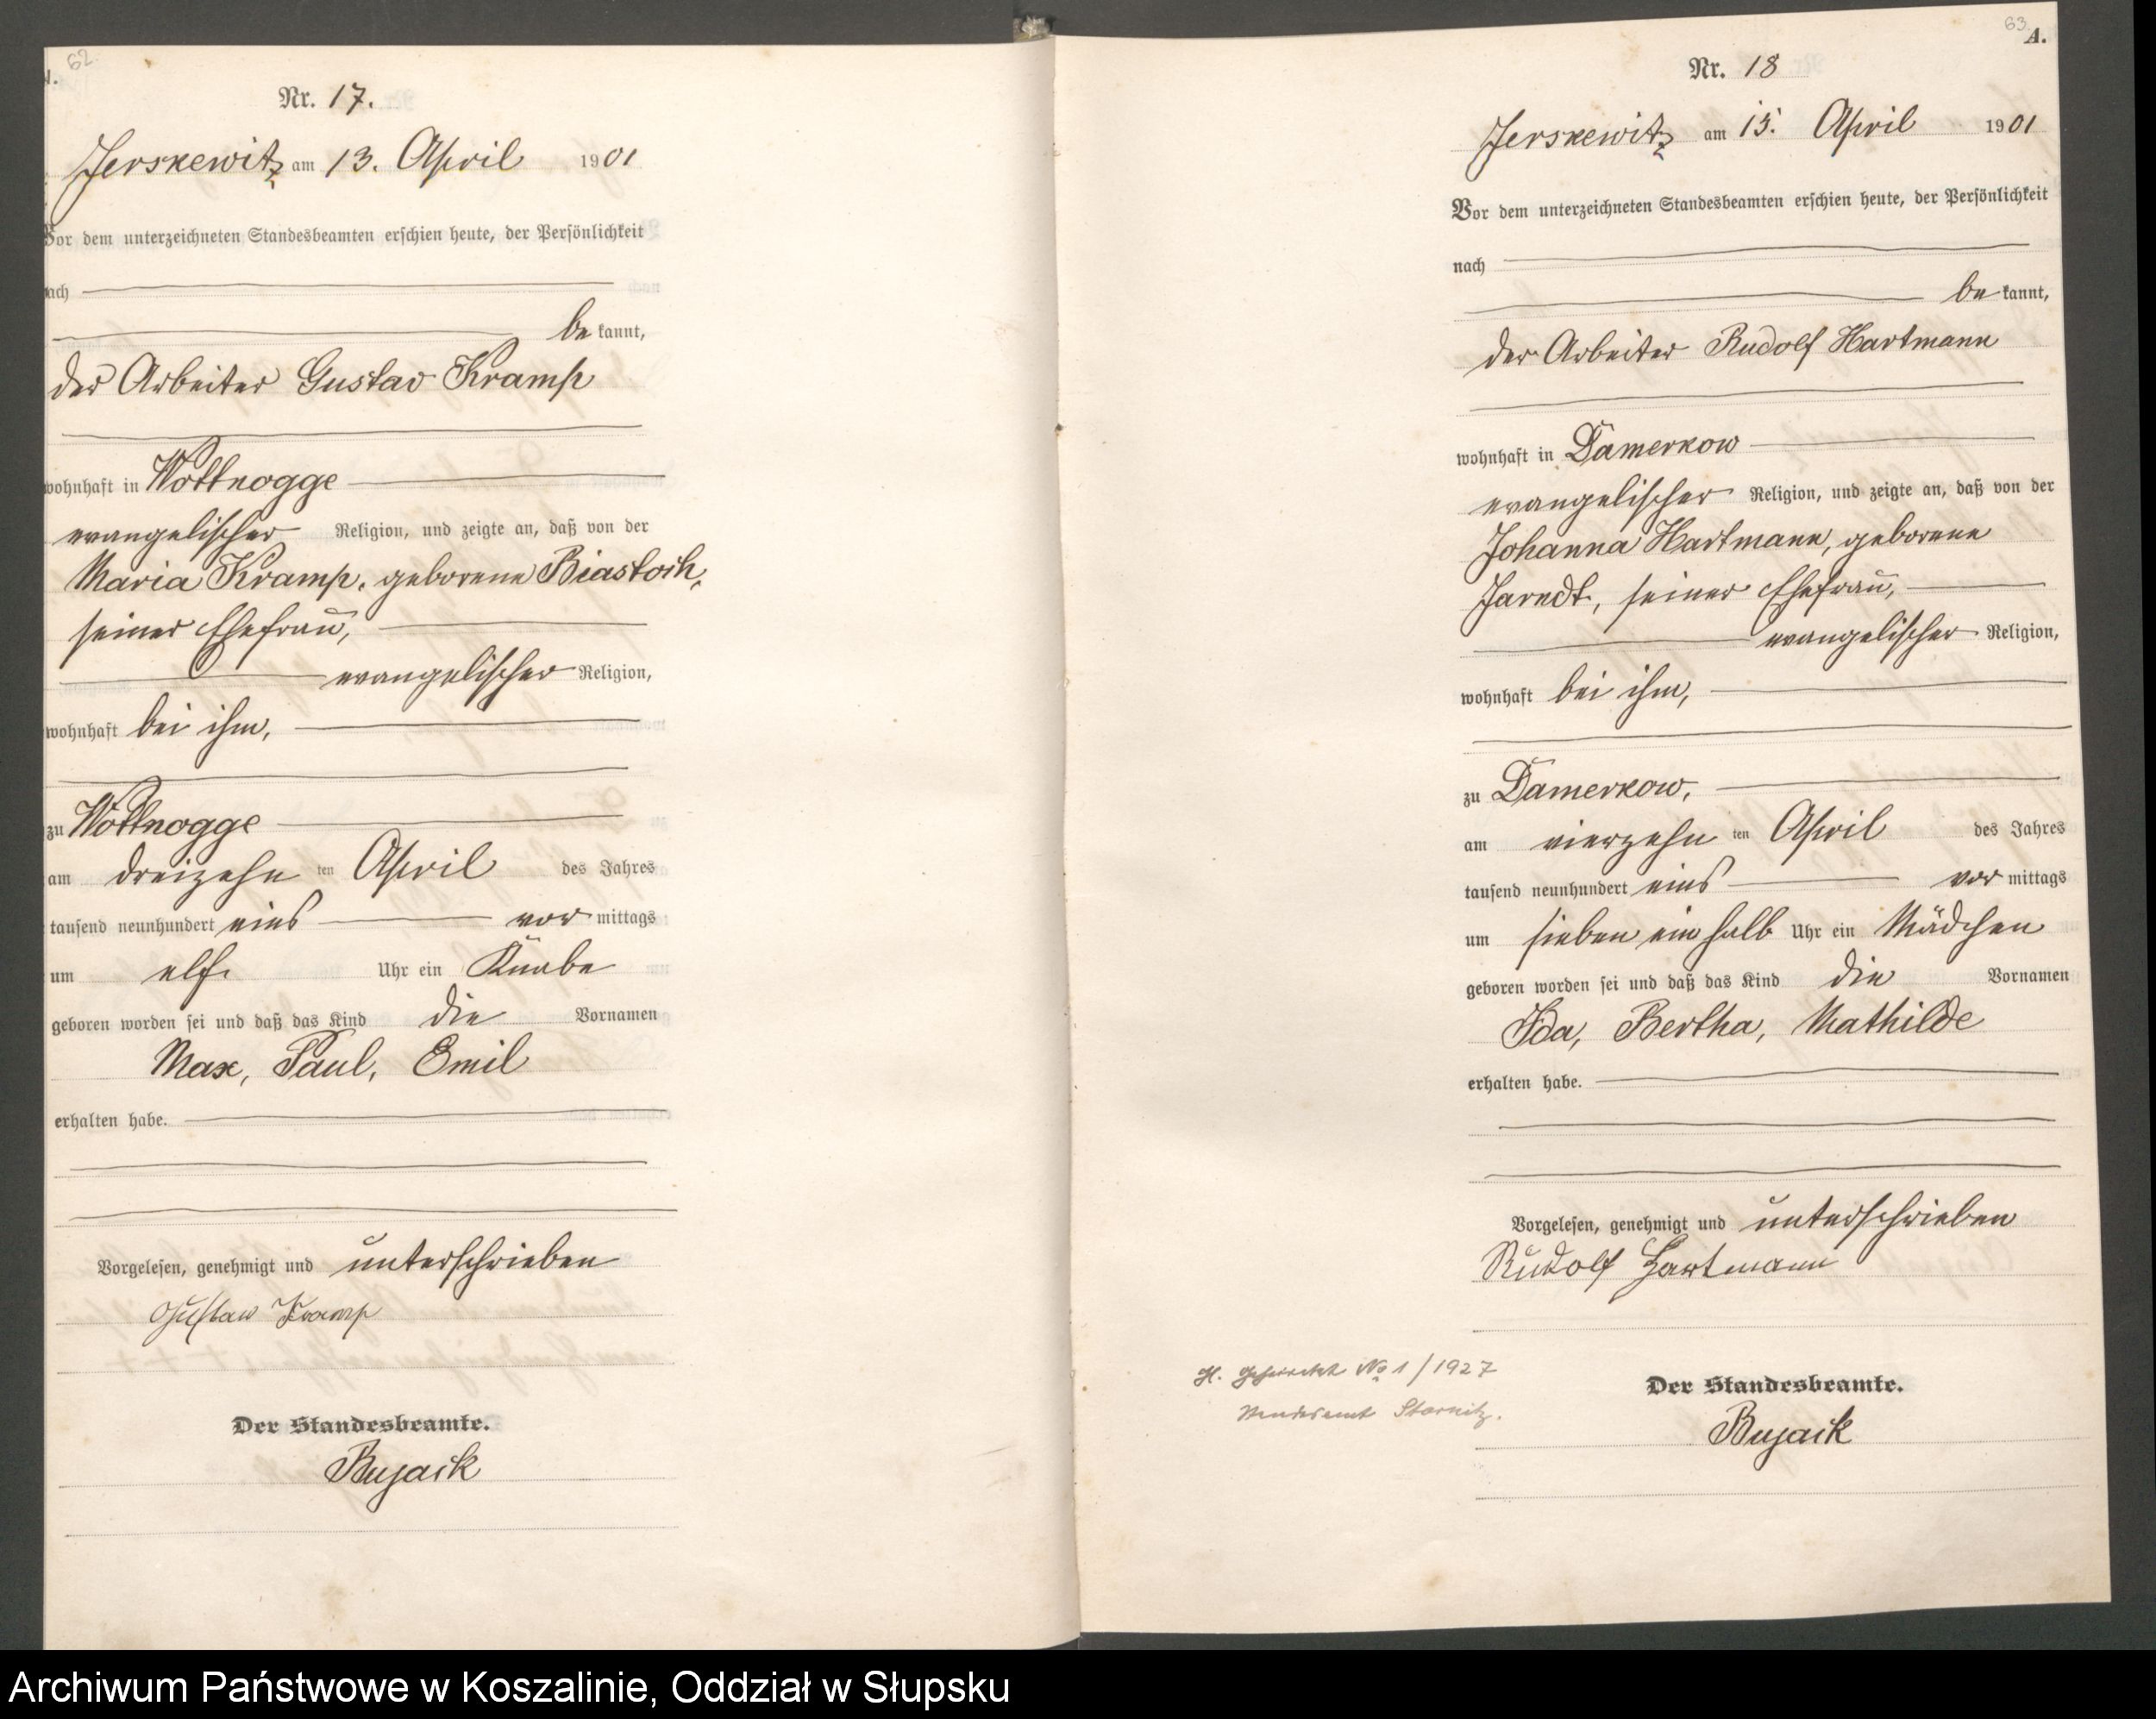 62
Nr. 17.
Jerskewitz am 13. April 1901
Vor dem unterzeichneten Standesbeamten erschien heute, der Persönlichkeit
nach
be kannt,
der Arbeiter Gustav Kramp
wohnhaft in Wottnogge
evangelischer Religion, und zeigte an, daß von der
Maria Kramp, geborene Biastoch,
seiner Ehefrau,
evangelischer Religion,
wohnhaft bei ihm,
zu Wottnogge
am dreizehn ten April des Jahres
tausend neunhundert eins vor mittags
um elf Uhr ein Knabe
geboren worden sei und daß das Kind die Vornamen
Max, Paul, Emil
erhalten habe.
Vorgelesen, genehmigt und unterschrieben
Gustaw Kramp
Der Standesbeamte.
Bujack
63
A.
Nr. 18
Jerskewitz am 15. April 1901
Vor dem unterzeichneten Standesbeamten erschien heute, der Persönlichkeit
nach
be kannt,
der Arbeiter Rudolf Hartmann
wohnhaft in Damerkow
evangelischer Religion, und zeigte an, daß von der
Johanna Hartmann, geborene
Jarndt, seiner Ehefrau,
evangelischer Religion,
wohnhaft bei ihm,
zu Damerkow,
am vierzehn ten April des Jahres
tausend neunhundert eins vor mittags
um sieben ein halb Uhr ein Mädchen
geboren worden sei und daß das Kind die Vornamen
Ida, Bertha, Mathilde
erhalten habe.
Vorgelesen, genehmigt und unterschrieben
Rudolf Hartmann
H. Geheiratet No 1/1927
Standesamt Starnitz.
Der Standesbeamte.
Bujack
Archiwum Państwowe w Koszalinie, Oddział w Słupsku